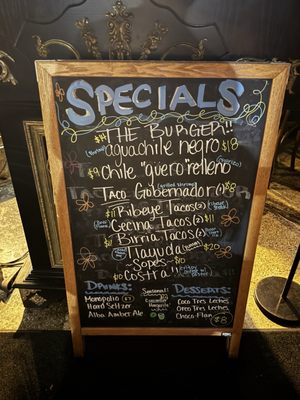 SPECIALS
$14 THE BURGER!!
aguachile negro $18
$9 chile "güero" relleno
Taco Gobernador (1) $8
$11 Ribeye Tacos (2)
$10 Cecina Tacos (2) $11
Birria Tacos (3)
Tlayuda $20
Sopes
$10 Costra!!
DRINKS:
Monopolio $7
Hard Seltzer
Alba Amber Ale
Seasonal:
$10
Cucumber
Margarita
DESSERTS:
Coco Tres Leches
Oreo Tres Leches
Choco-Flan
$8